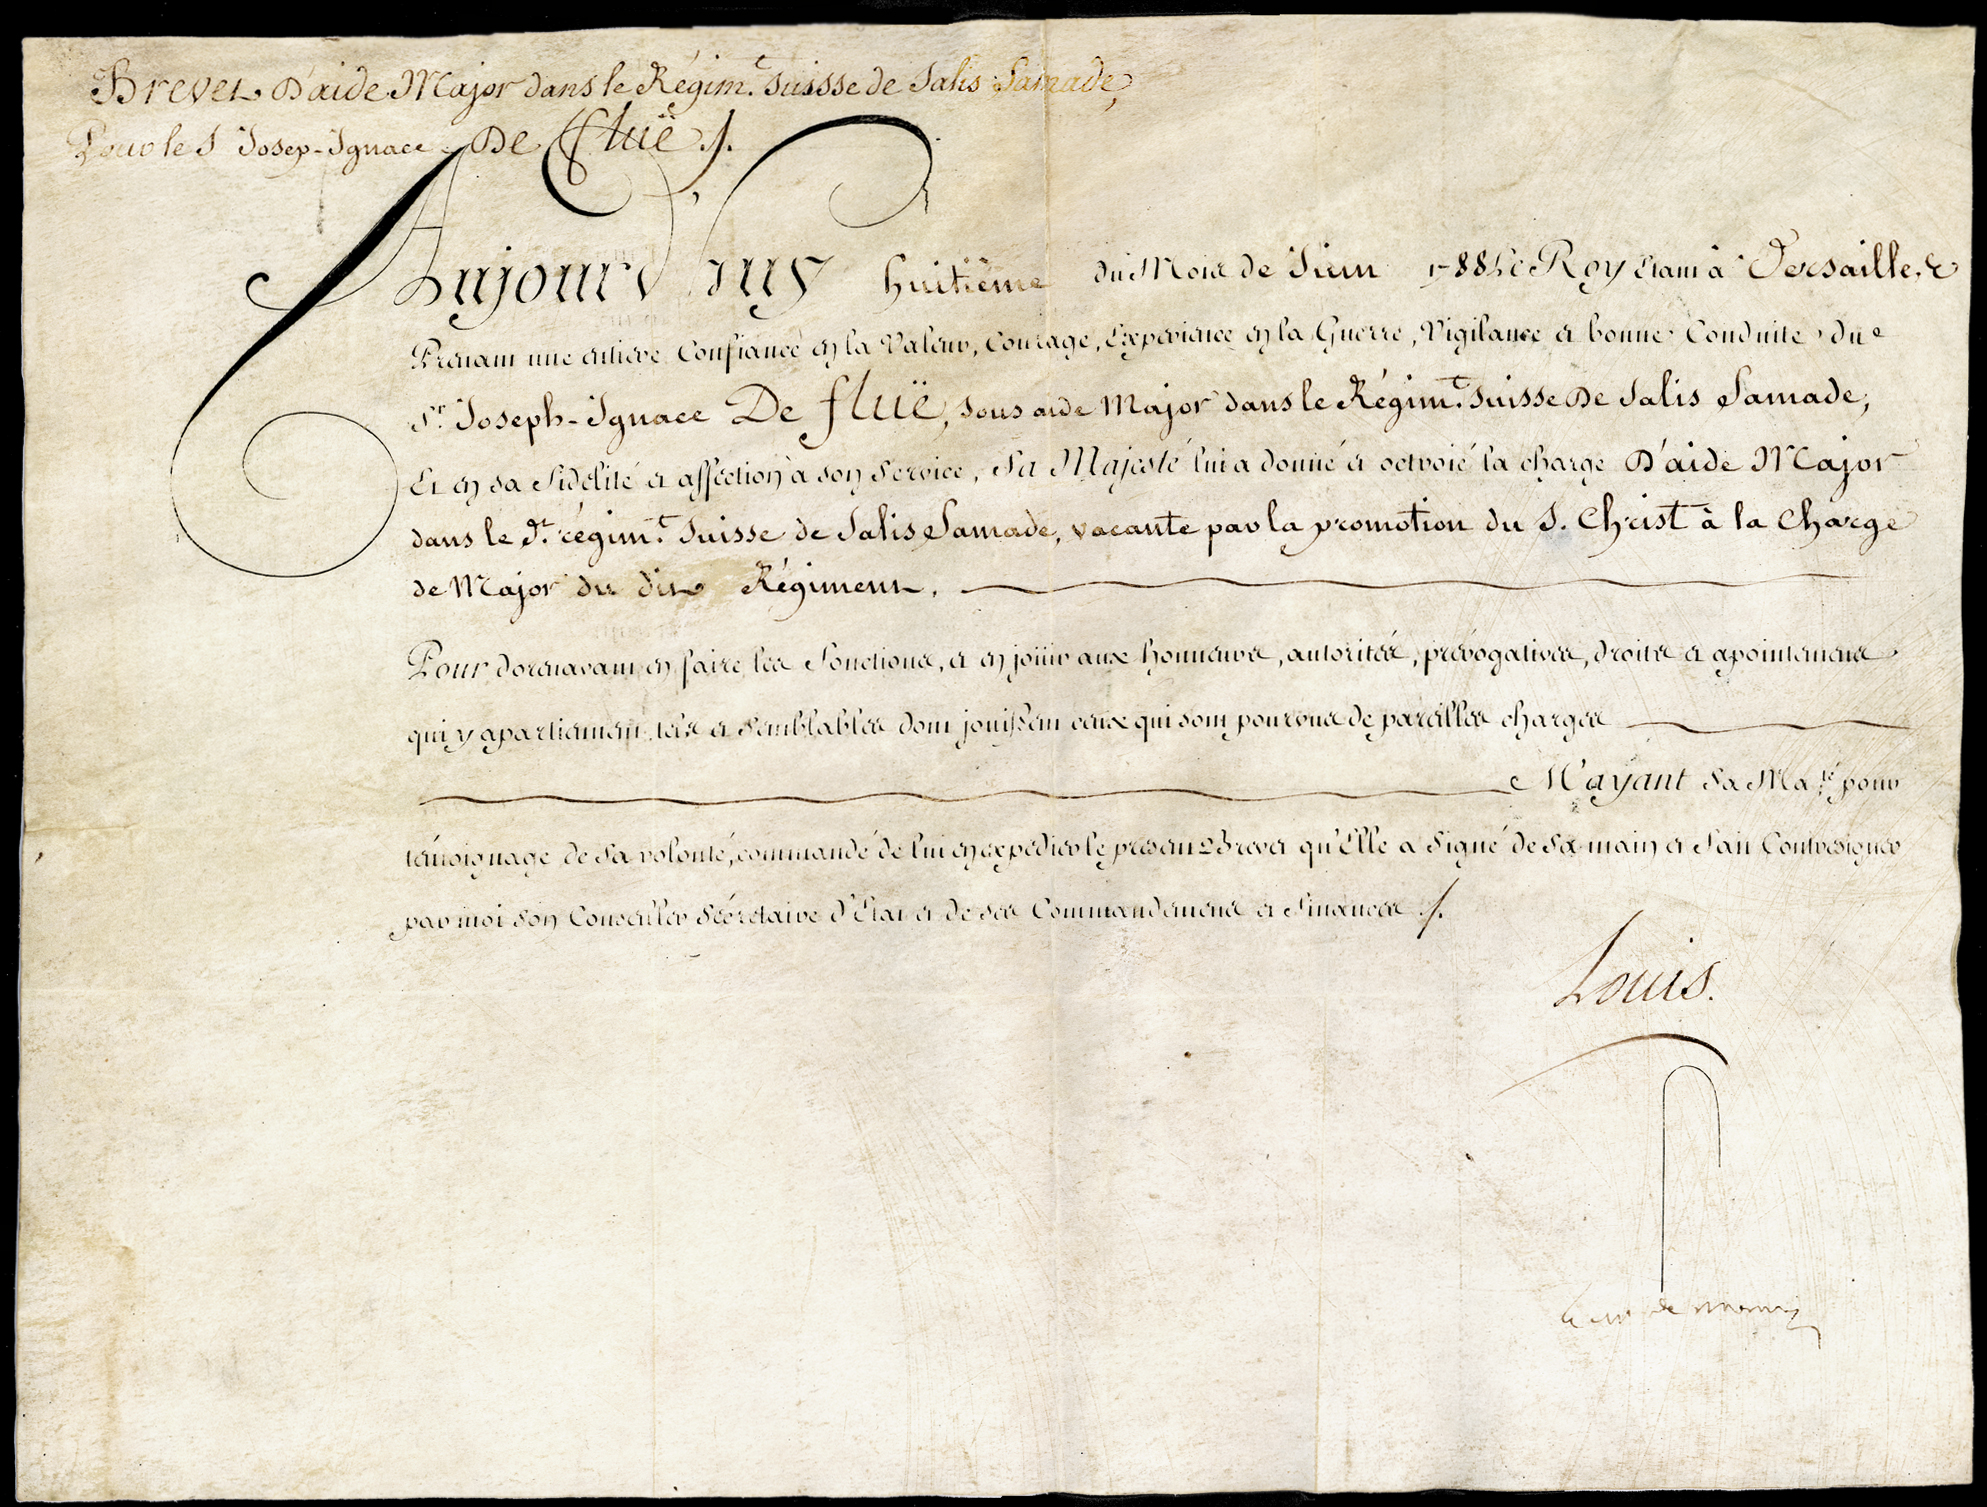 Brevet D'aide Major dans le Régim.t Suisse de Salis Samade,
Pour le S Josep-Ignace De Flüe ./.
Aujourd'huy huitième du Mois de Juin 1788 Le Roy étant à Versailles,
Prenant une entiere Confiance en la Valeur, Courage, Expérience en la Guerre, Vigilance et bonne Conduite du
S.r Joseph-Ignace De flüe, sous aide Major dans le Régim.t Suisse De Salis Samade,
Et en sa fidélité et affection à son Service, Sa Majesté lui a donné et octroié la charge D'aide Major
dans le d.t régim.t Suisse de Salis Samade, vacante par la promotion du S. Christ à la Charge
de Major du dit Régiment.
Pour dorenavant en faire les fonctions, et en joüir aux honneurs, autorités, prérogatives, droits et apointemens
qui y apartiennent, tels et semblables dont jouissent ceux qui sont pourvus de pareilles charges
M'ayant Sa Ma.té pour
témoignage de Sa volonté, commandé de lui en expédier le présent Brevet qu'Elle a Signé de Sa main et fait Contresigner
par moi son Conseiller Sécretaire d'Etat et de ses Commandemens et finances ./.
Louis.
de